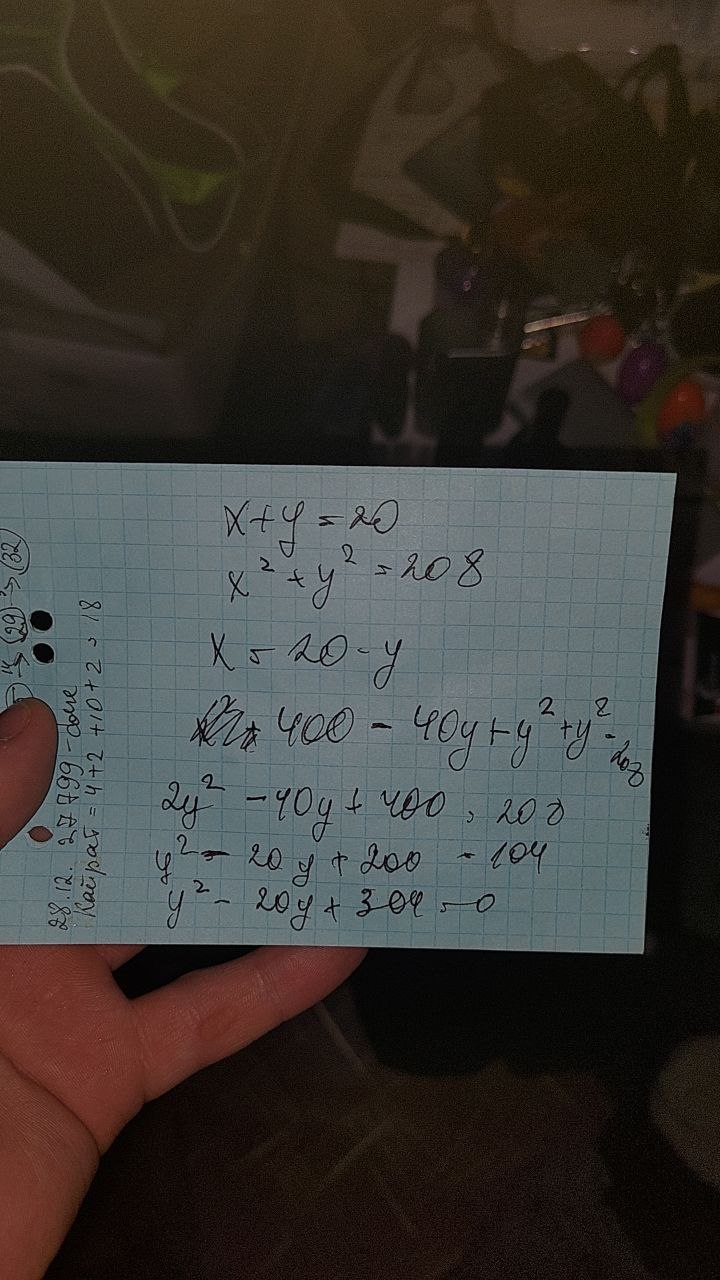 x+y=20
x²+y²=208
x=20-y
400-40y+y²+y²=208
2y²-40y+400=208
y²-20y+200=104
y²-20y+304=0
28.12. 27799-done
Кайрат=4+2+10+2=18
(29)→(32)